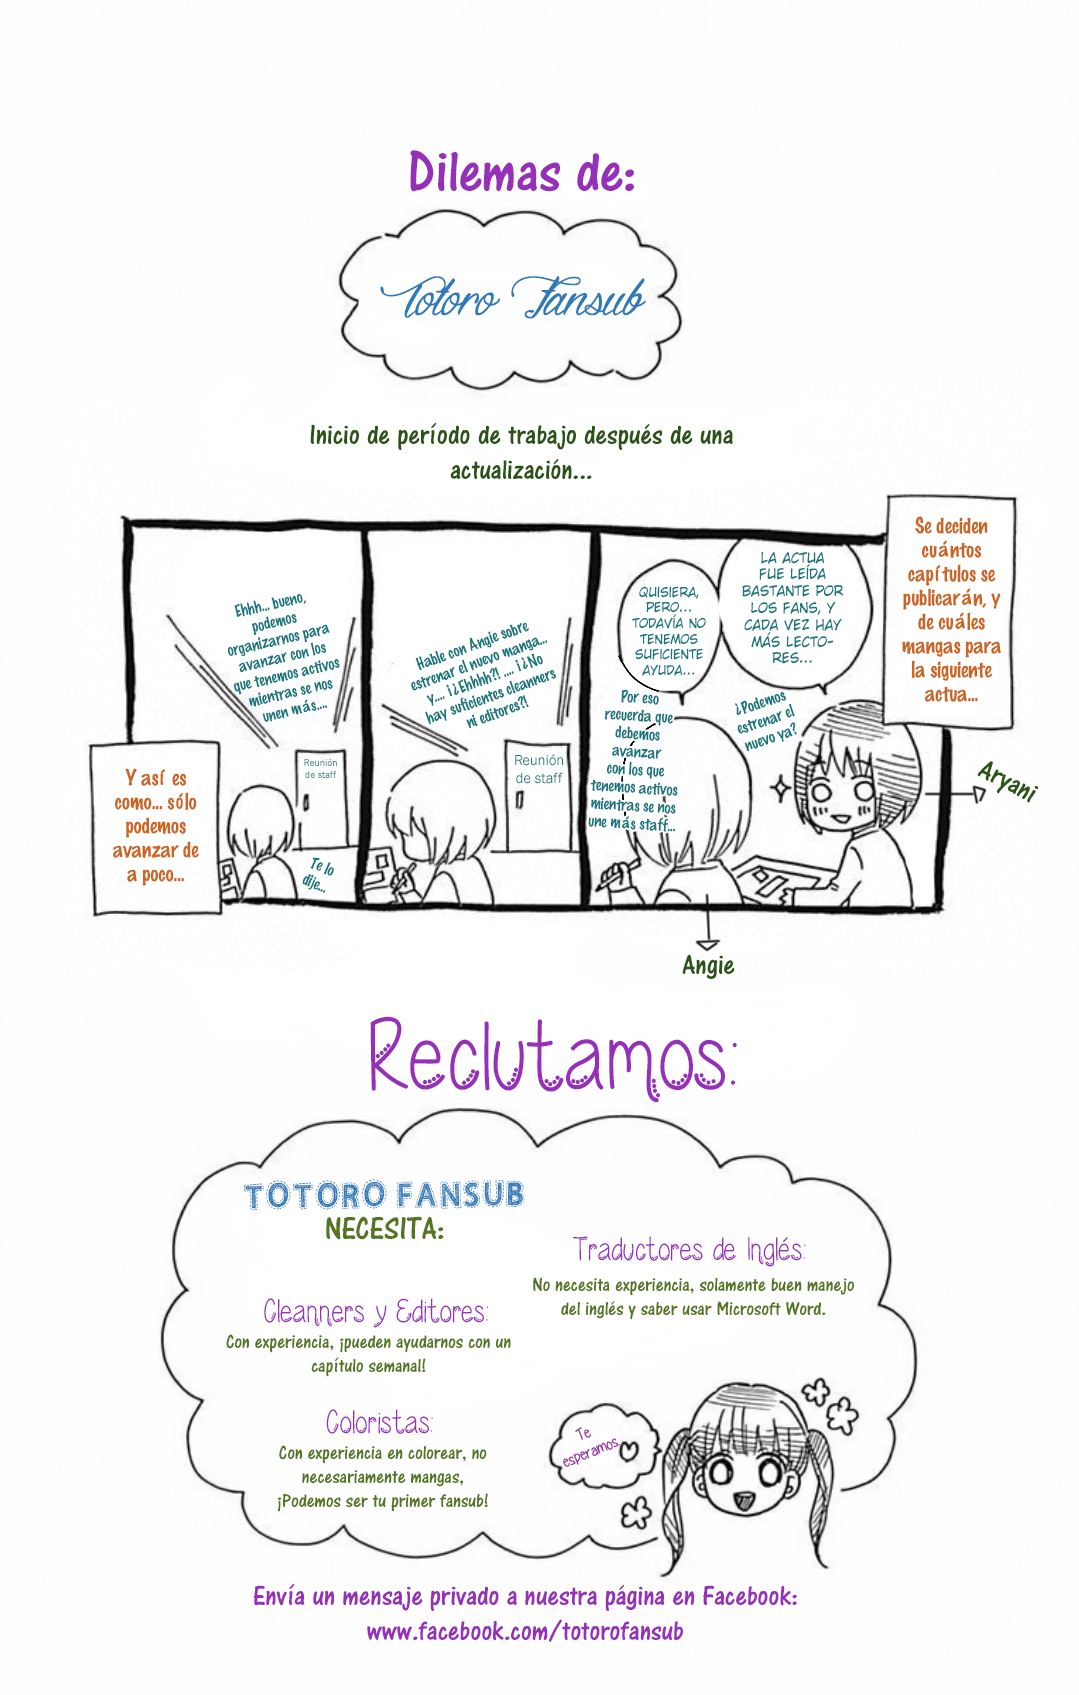 Dilemas de:
Totoro Fansub
Inicio de período de trabajo después de una
actualización...
Se deciden
cuántos
capítulos se
publicarán, y
de cuáles
mangas para
la siguiente
actua...
LA ACTUA
FUE LEÍDA
BASTANTE POR
LOS FANS, Y
CADA VEZ HAY
MÁS LECTO-
RES...
¿Podemos
estrenar el
nuevo ya?
Aryani
QUISIERA,
PERO...
TODAVÍA NO
TENEMOS
SUFICIENTE
AYUDA...
Por eso
recuerda que
debemos
avanzar
con los que
tenemos activos
mientras se nos
une más staff...
Angie
Hable con Angie sobre
estrenar el nuevo manga...
y.... ¡¿Ehhhh?! .... ¡¿No
hay suficientes cleanners
ni editores?!
Reunión
de staff
Ehhh... bueno,
podemos
organizarnos para
avanzar con los
que tenemos activos
mientras se nos
unen más....
Reunión
de staff
Te lo
dije...
Y así es
como... sólo
podemos
avanzar de
a poco...
Reclutamos:
TOTORO FANSUB
NECESITA:
Traductores de Inglés:
No necesita experiencia, solamente buen manejo
del inglés y saber usar Microsoft Word.
Cleanners y Editores:
Con experiencia, ¡pueden ayudarnos con un
capítulo semanal!
Coloristas:
Con experiencia en colorear, no
necesariamente mangas,
¡Podemos ser tu primer fansub!
Te
esperamos
Envía un mensaje privado a nuestra página en Facebook:
www.facebook.com/totorofansub